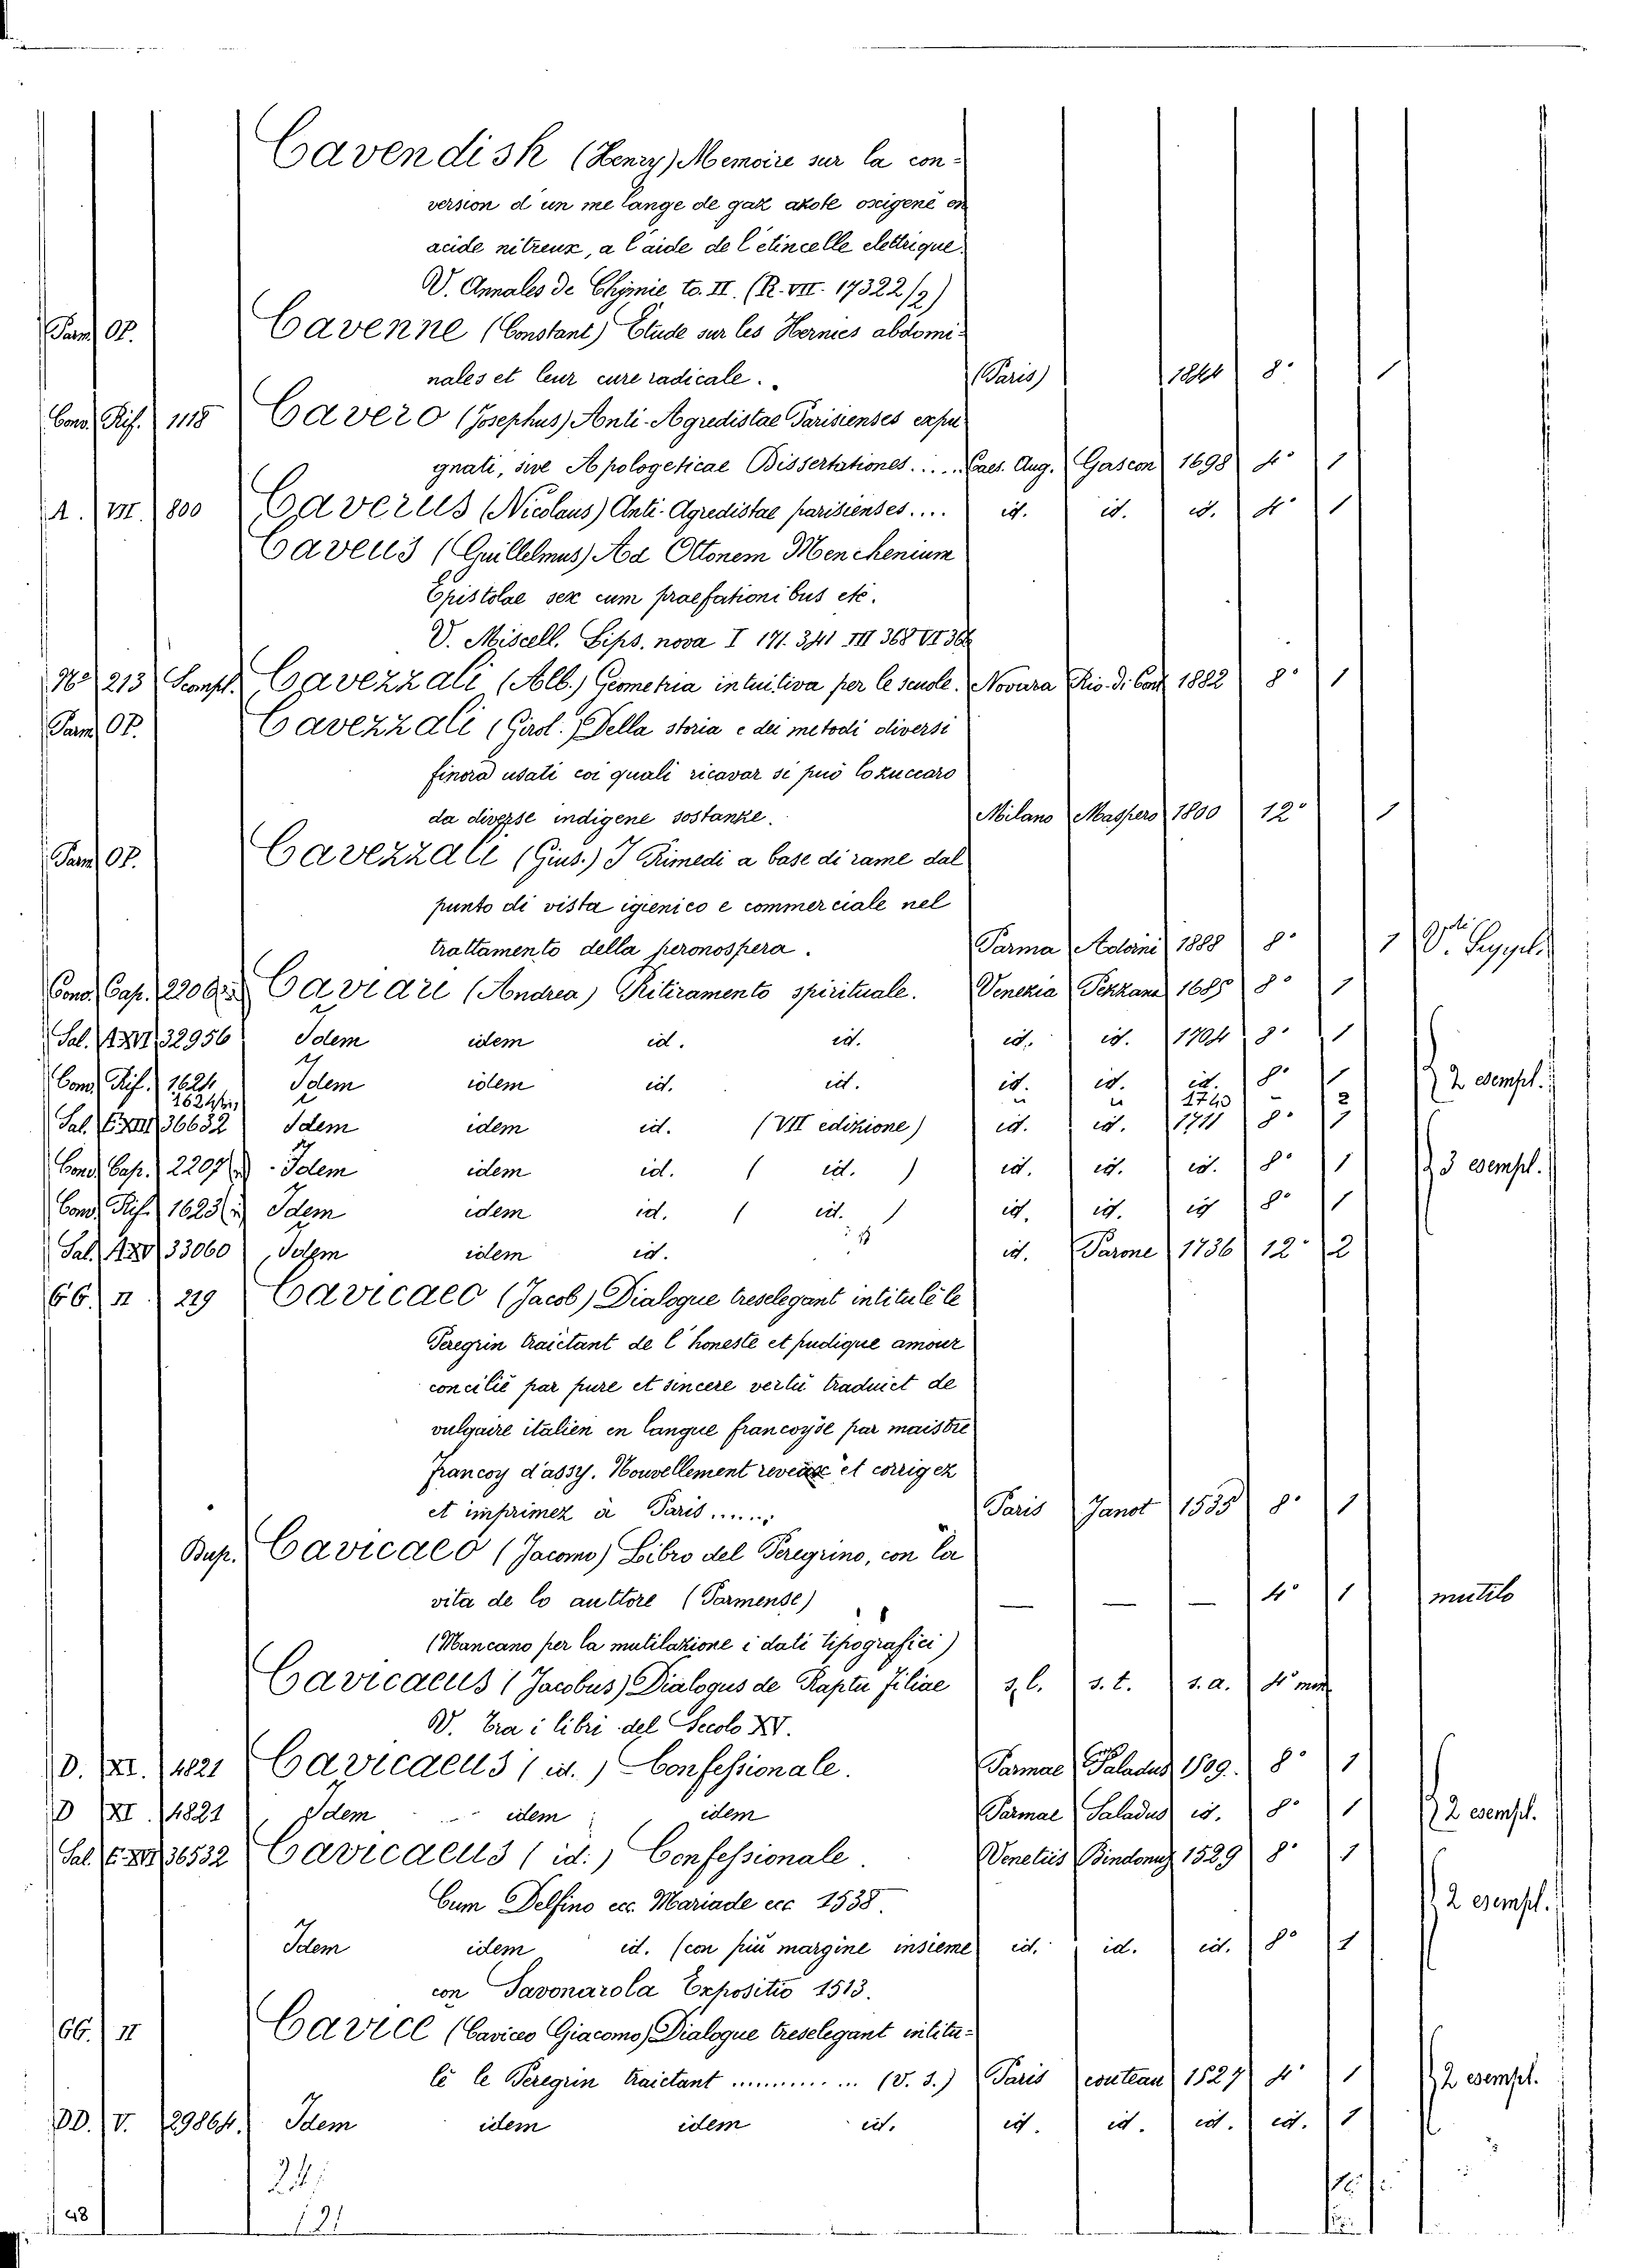 Cavendisk (Henry) Memoire sur la con-
version d'un melange de gaz azote oxigené en
acide nitreux, a l'aide de l'etincelle elettrique.
V. Annales de Chymie to. II. (R. VII. 17322/2)
Parm. Op. Cavenne (Constant) Etude sur les Hernies abdomi-
nales et leur cure radicale. . (Paris) 1844 8° 1
Conv. Rif. 1118 Cavero (Josephus) Anti-Agredistae Parisienses expu
gnati, sive Apologeticae Dissertationes..... Caes. Aug. Gascon 1698 4° 1
A. VII. 800 Caverus (Nicolaus) Anti-Agredistae parisienses.... id. id. id. 4° 1
Caveus (Guillelmus) Ad Ottonem Menchenium
Epistolae sex cum praefationibus etc.
V. Miscell. Lips. nova I 171. 341 III 368 VI 366
N° 213 Scompt. Cavezzali (Alb.) Geometria intuitiva per le scuole. Novara Rio. di Cart 1882 8° 1
Parm. Op. Cavezzali (Girol.) Della storia e dei metodi diversi
finora usati coi quali ricavar si può lo zuccaro
da diverse indigene sostanze. Milano Maspero 1800 12° 1
Parm. Op. Cavezzali (Gius.) I Rimedi a base di rame dal
punto di vista igienico e commerciale nel
trattamento della peronospera. Parma Adorni 1888 8° 1
Conv. Cap. Caviari (Andrea) Ritiramento spirituale. Venezia Pezzana 1685 8° 1
Sal. 32956 Idem idem id. id. id. id. 1704 8° 1
Conv. Rif. 1624 Idem idem id. id. id. id. id. 8° 1 2 esempl.
1624 bis " " 1743 - 2
Sal. 36632 Idem idem id. (VII edizione) id. id. 1711 8°
Conv. Cap. 2207 - Idem idem id. ( id. ) id. id. id. 8° 1 3 esempl.
Conv. Rif. 1623 Idem idem id. ( id. ) id. id. id 8° 1
Sal. 33060 Idem idem id. id. Parone 1736 12° 2
66. II 219 Caviceo (Jacob) Dialogue treselegant intitulé le
Peregrin traictant de l'honeste et pudique amour
concilié par pure et sincere vertu traduict de
vulgaire italien en langue françoyse par maistre
françoy d'assy. Nouvellement et corrigez
et imprimez à Paris...... Paris Janot 1535 8° 1
Bup. Cavicaeo (Jacomo) Libro del Peregrino, con la
vita de lo auttore (Parmense) — — — 4° 1 mutilo
(Mancano per la mutilazione i dati tipografici)
Cavicaeus (Jacobus) Dialogus de Raptu filiae s. l. s. t. s. a. 4° min
V. Tra i libri del Secolo XV.
D. XI. 4821 Cavicaeus (id.) Confessionale. Parmae Saladus 1509. 8° 1
D XI. 4821 Idem idem idem Parmae Saladus id. 8° 1 2 esempl.
Sal. 36532 Cavicaeus (id.) Confessionale. Venetiis Bindonus 1529 8° 1
Cum Delfino ecc. Mariade ecc 1538.
2 esempl.
Idem idem id. (con più margine insieme id. id. id. 8° 1
con Savonarola Expositio 1513.
66. II Cavice (Caviceo Giacomo) Dialogue treselegant intitu-
lé le Peregrin traictant ............ (V. S.) Paris couteau 1527 4° 1 2 esempl.
DD. V. 29864. Idem idem idem id. id. id. id. id. 1
24.
121
48